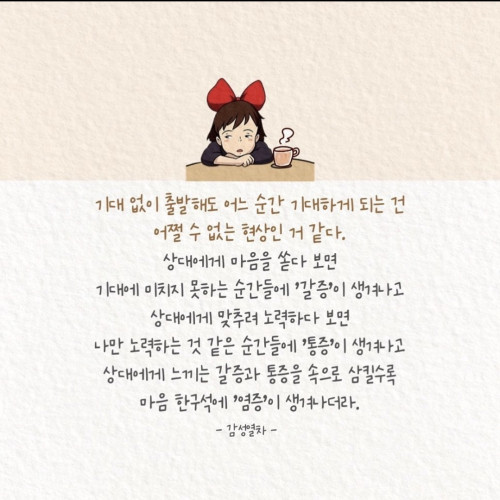 기대 없이 출발해도 어느 순간 기대하게 되는 건
어쩔 수 없는 현상인 거 같다.
상대에게 마음을 쏟다 보면
기대에 미치지 못하는 순간들에 '갈증'이 생겨나고
상대에게 맞추려 노력하다 보면
나만 노력하는 것 같은 순간들에 '통증'이 생겨나고
상대에게 느끼는 갈증과 통증을 속으로 삼킬수록
마음 한구석에 '염증'이 생겨나더라.
- 감성열차 -